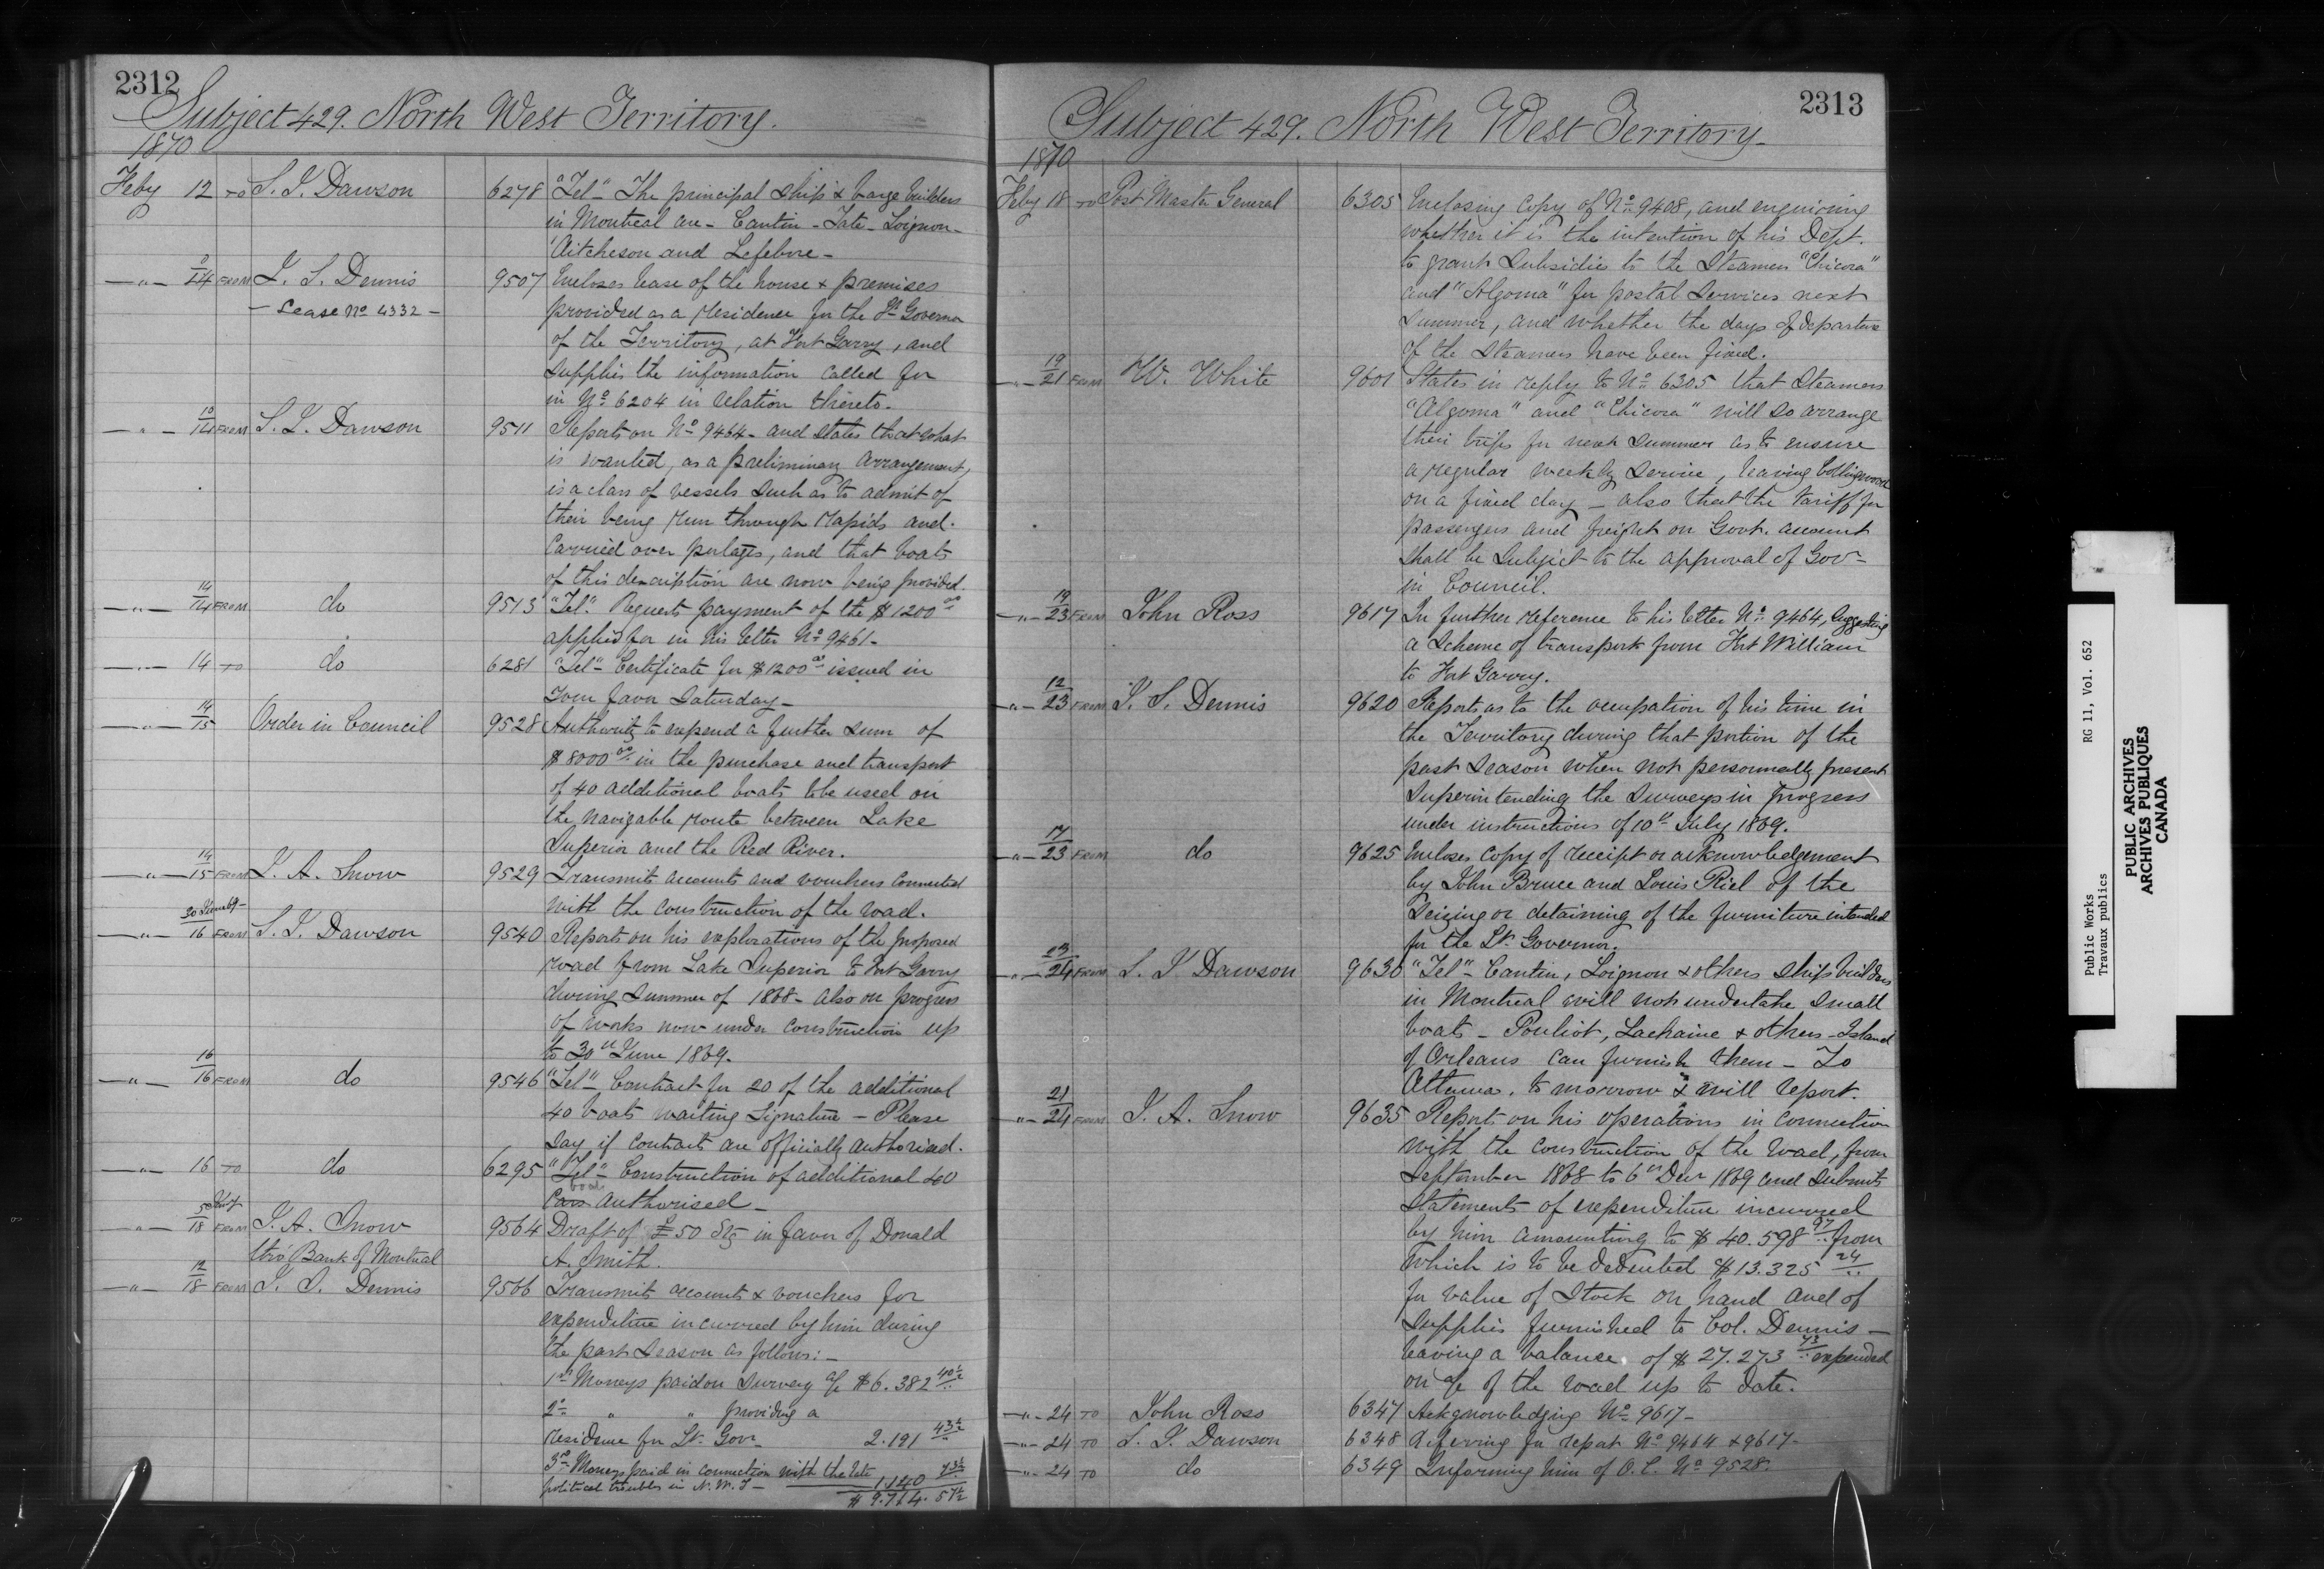 2312
Subject 429. North West Territory.
1870
Feby 12 TO S. J. Dawson 6278 "Tel" The principal Ship & barge builders
in Montreal are - Cantin - Tate - Loignon -
Aitcheson and Lefebvre -
—"— 9/14 FROM J. S. Dennis 9507 Encloses lease of the house & premises
- Lease No 4332 - provided as a residence for the Lt Governor
of the Territory, at Fort Garry, and
supplies the information called for
in No 6204 in relation thereto.
—"— 10/14 FROM S. J. Dawson 9511 Reports on No 9464 - and states that what
is wanted, as a preliminary arrangement,
is a class of vessels such as to admit of
their being run through rapids and
carried over portages, and that boats
of this description are now being provided.
—"— 14/14 FROM do 9513 "Tel" Requests payment of the $1200 00
applied for in his letter No 9461 -
—"— 14 TO do 6281 "Tel" Certificate for $1200 00 issued in
your favor Saturday -
—"— 14/15 Order in Council 9528 Authority to expend a further sum of
$8000 00 in the purchase and transport
of 40 additional boats to be used on
the navigable route between Lake
Superior and the Red River.
—"— 14/15 FROM J. A. Snow 9529 Transmits accounts and vouchers connected
with the construction of the road.
30 June 69 -
—"— 16 FROM S. J. Dawson 9540 Reports on his explorations of the proposed
road from Lake Superior to Fort Garry
during Summer of 1868 - also on progress
of works now under construction up
to 30th June 1869.
—"— 16/16 FROM do 9546 "Tel" Contract for 20 of the additional
40 boats waiting signature - Please
say if contracts are officially authorised.
—"— 16 TO do 6295 "Tel" Construction of additional 40
boats
Cars authorised -
—"— 18 FROM J. A. Snow 9564 Draft of £50 Stg in favor of Donald
thro' Bank of Montreal A. Smith.
—"— 12/18 FROM J. S. Dennis 9566 Transmits accounts & vouchers for
expenditure incurred by him during
the past season as follows: -
1st Moneys paid on Survey a/c $6.382 40½
2d " " providing a
residence for Lt. Gov 2.191 43½
3rd Moneys paid in connection with the late
political troubles in N.W.T - 1.140 73½
$9.714. 57½
2313
Subject 429. North West Territory -
1870
Feby 18 TO Post Master General 6305 Enclosing copy of No 9408, and enquiring
whether it is the intention of his Dept.
to grant Subsidies to the Steamers "Chicora"
and "Algoma" for postal services next
summer, and whether the days of departure
of the Steamers have been fixed.
—"— 19/21 FROM W. White 9601 States in reply to No 6305 that Steamers
"Algoma" and "Chicora" will so arrange
their trips for next summer as to ensure
a regular weekly service, leaving Collingwood
on a fixed day - also that the tariff for
passengers and freight on Govt. account
shall be subject to the approval of Gov -
in Council.
—"— 19/23 FROM John Ross 9617 In further reference to his letter No 9464, suggesting
a scheme of transport from Fort William
to Fort Garry.
—"— 12/23 FROM J. S. Dennis 9620 Reports as to the occupation of his time in
the Territory during that portion of the
past season when not personnally present
superintending the surveys in progress
under instructions of 10th July 1869.
—"— 17/23 FROM do 9625 Encloses copy of receipt or acknowledgement
by John Bruce and Louis Riel of the
seizing or detaining of the furniture intended
for the Lt. Governor.
—"— 23/24 FROM S. J. Dawson 9630 "Tel" Cantin, Loignon & others ship builders
in Montreal will not undertake small
boats - Pouliot, Lachaine & others - Island
of Orleans can furnish them - To
Ottawa, to morrow & will report.
—"— 21/24 FROM J. A. Snow 9635 Reports on his operations in connection
with the construction of the road, from
September 1868 to 6th Decr 1869 and submits
Statements of expenditure incurred
by him amounting to $40.598 97 from
which is to be deducted $13.325 24
for value of Stock on hand and of
supplies furnished to Col. Dennis -
leaving a balance of $27.273 73 expended
on a/c of the road up to date.
—"— 24 TO John Ross 6347 Acknowledging No 9617 -
—"— 24 TO S. J. Dawson 6348 Referring for report No 9464 & 9617 -
—"— 24 TO do 6349 Informing him of O.C. No 9528.
Public Works RG 11, Vol. 652
Travaux publics
PUBLIC ARCHIVES
ARCHIVES PUBLIQUES
CANADA